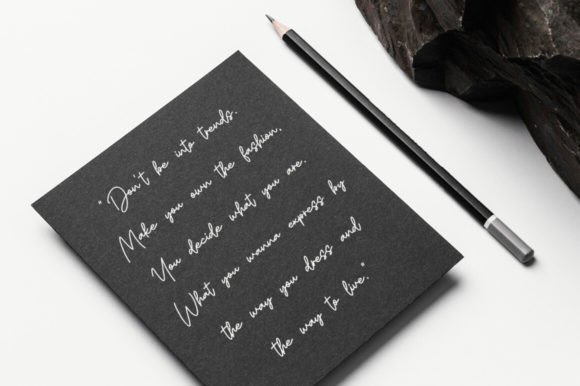 "Don't be into trends.
Make you own the fashion,
You decide what you are.
What you wanna express by
the way you dress and
the way to live."